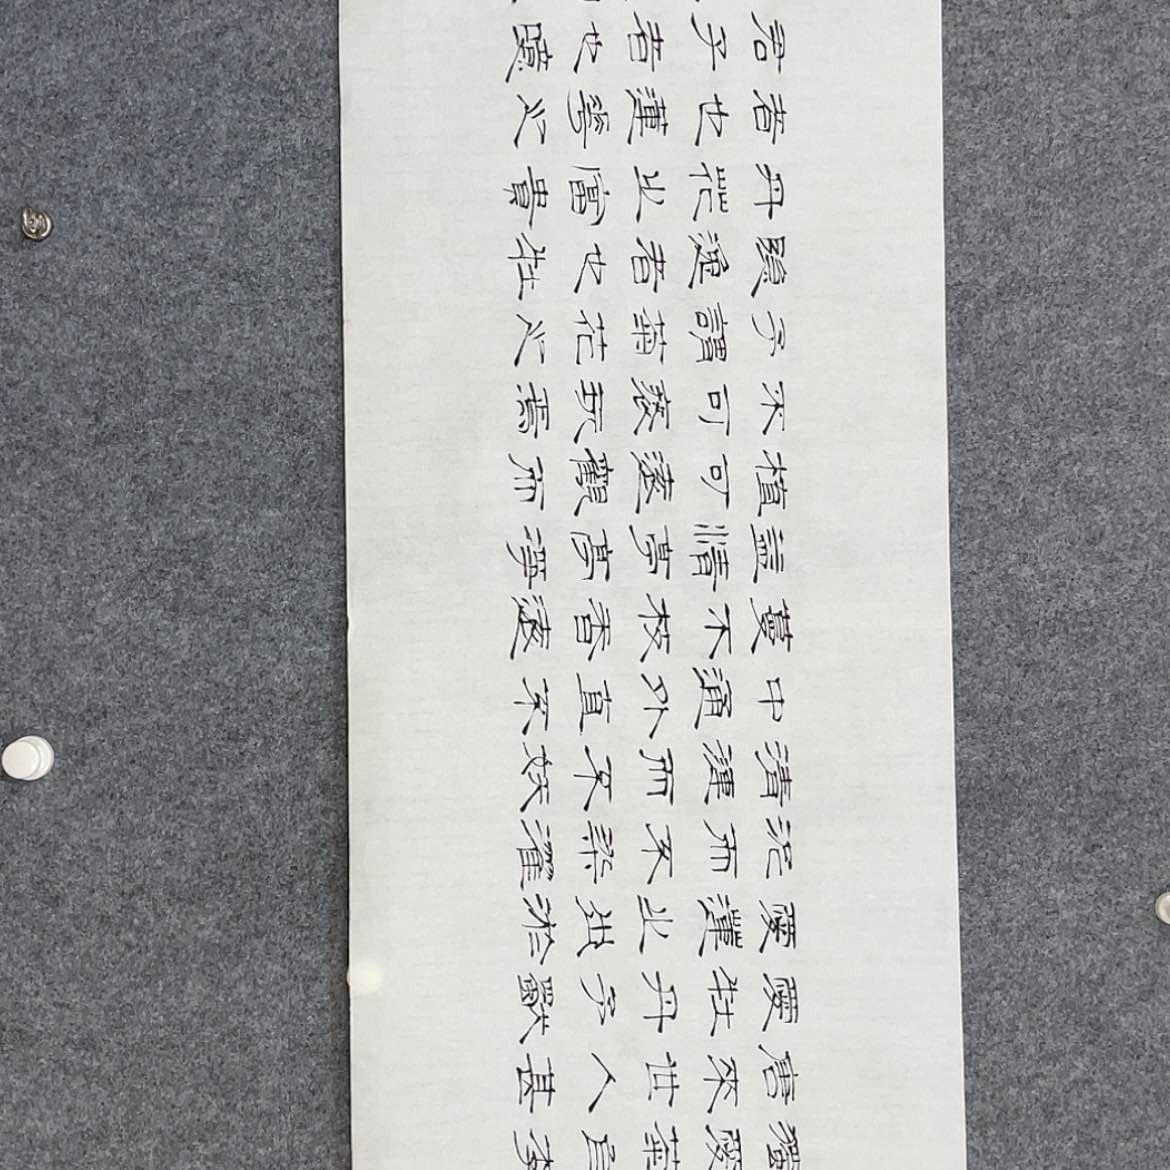 獨愛菊自李
唐來世人甚
愛牡丹予獨
愛蓮之出淤
泥而不染濯
清漣而不妖
中通外直不
蔓不枝香遠
益清亭亭淨
植可遠觀而
不可褻玩焉
予謂菊花之
隱逸者也牡
丹花之富貴
者也蓮花之
君子者也噫